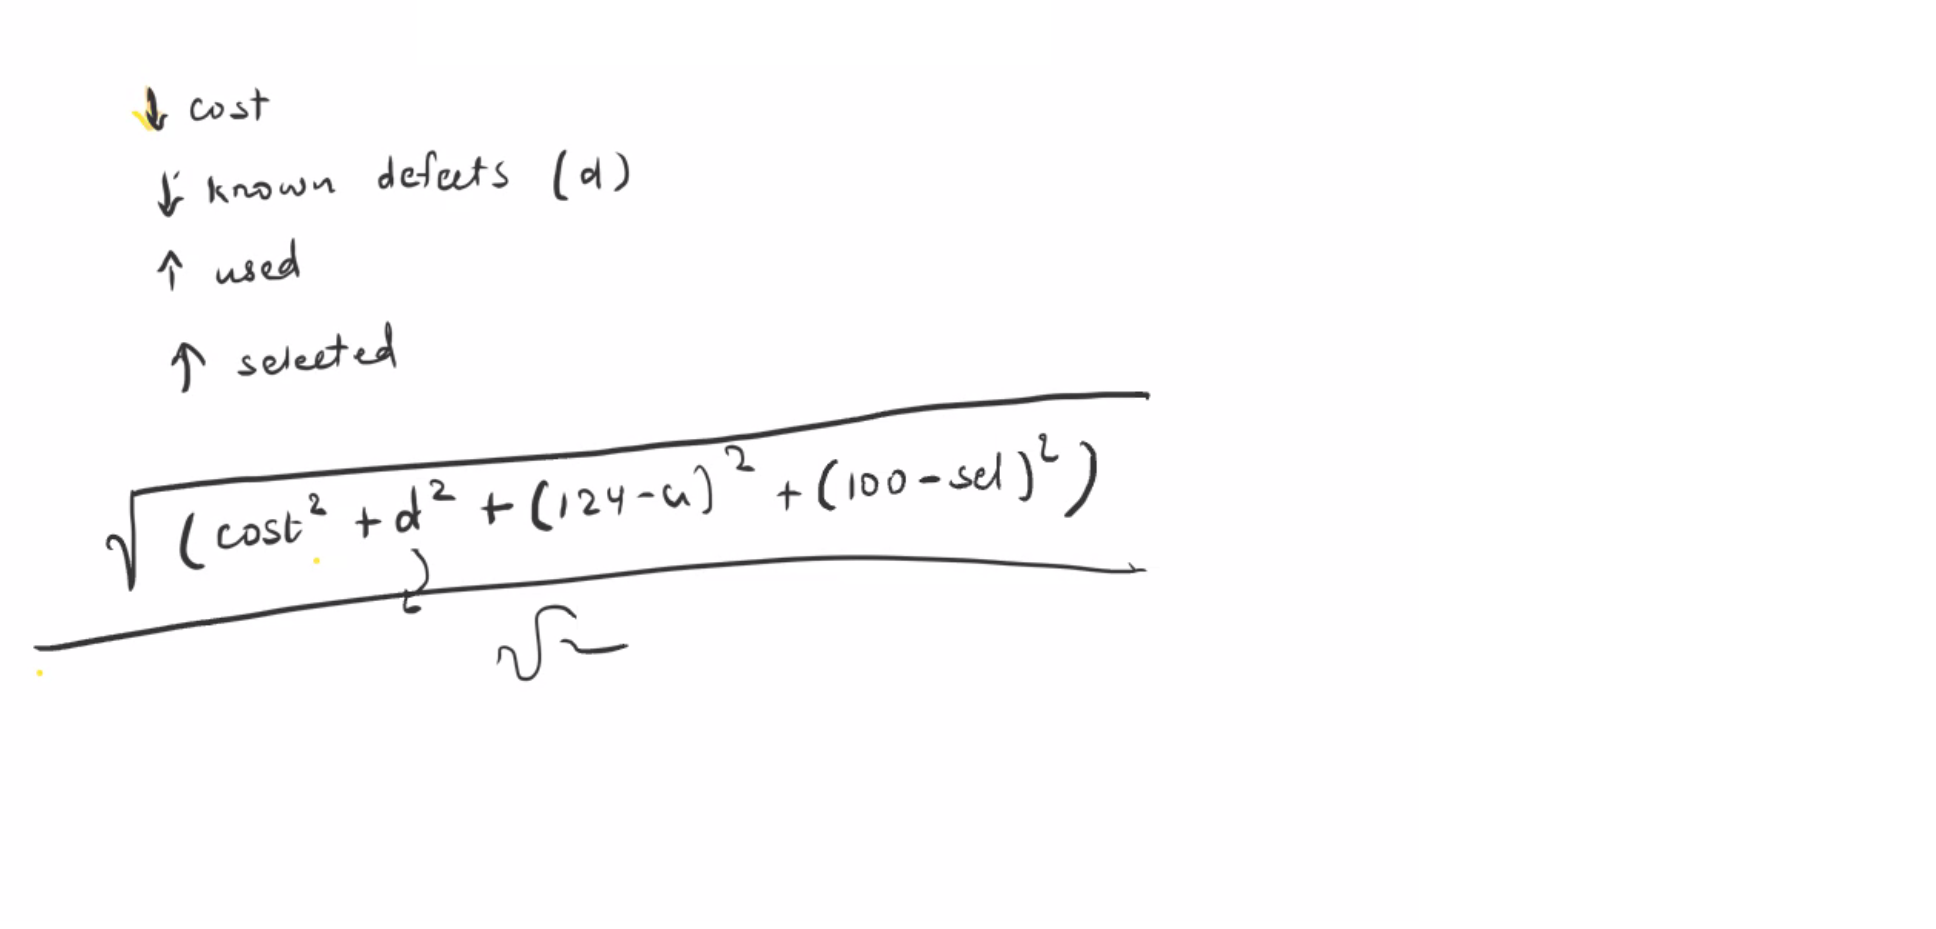 ↓ cost
↓ known defects (d)
↑ used
↑ selected
√(cost² + d² + (124-u)² + (100-sel)²)
√